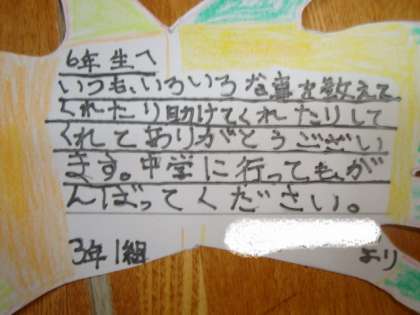 6年生へ
いつも、いろいろな事を教えて
くれたり助けてくれたりして
くれてありがとうござい
ます。中学に行っても、が
んばってください。
3年1組
より